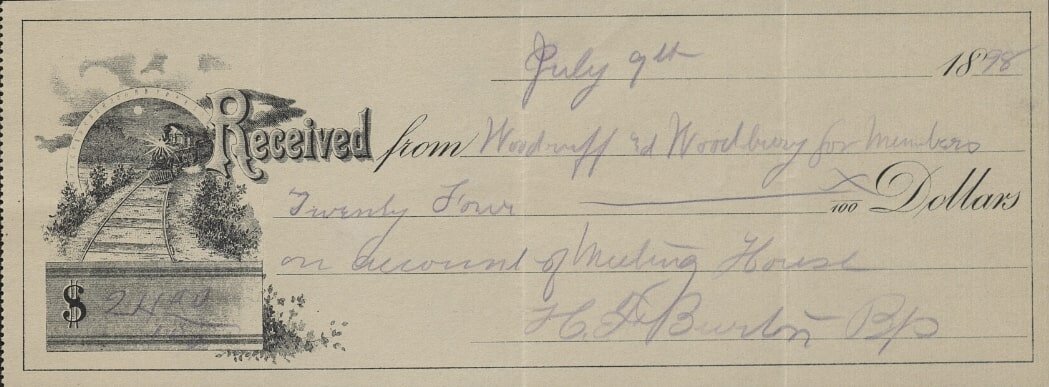 July 9th 1898
Received from Woodruff Ed Woodbury for Members
Twenty Four X/100 Dollars
on account of Meeting House
$ 24.00
H. F. Burton Bp